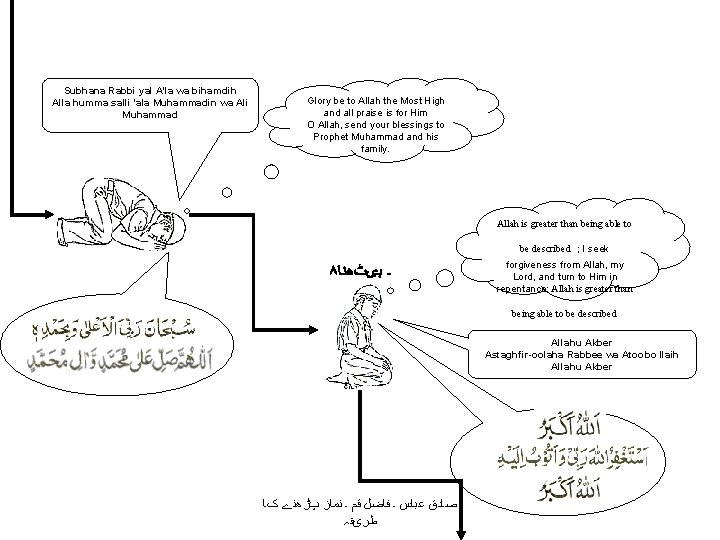 Subhana Rabbi yal A'la wa bihamdih
Alla humma salli 'ala Muhammadin wa Ali
Muhammad
Glory be to Allah the Most High
and all praise is for Him
O Allah, send your blessings to
Prophet Muhammad and his
family.
سُبْحَانَ رَبِّیَ الْاَعْلٰی وَبِحَمْدِہٖ
اَللّٰھُمَّ صَلِّ عَلٰی مُحَمَّدٍ وَّاٰلِ مُحَمَّدٍ
Allah is greater than being able to
be described ; I seek
forgiveness from Allah, my
Lord, and turn to Him in
repentance; Allah is greater than
being able to be described
۸۔ بیٹھنا
Allahu Akber
Astaghfir-oolaha Rabbee wa Atoobo Ilaih
Allahu Akber
اَللّٰہُ اَکْبَرُ
اَسْتَغْفِرُ اللّٰہَ رَبِّیْ وَاَتُوْبُ اِلَیْہِ
اَللّٰہُ اَکْبَرُ
صادق عباس ۔ فاضل قم ۔ نماز پڑھنے کا
طریقہ